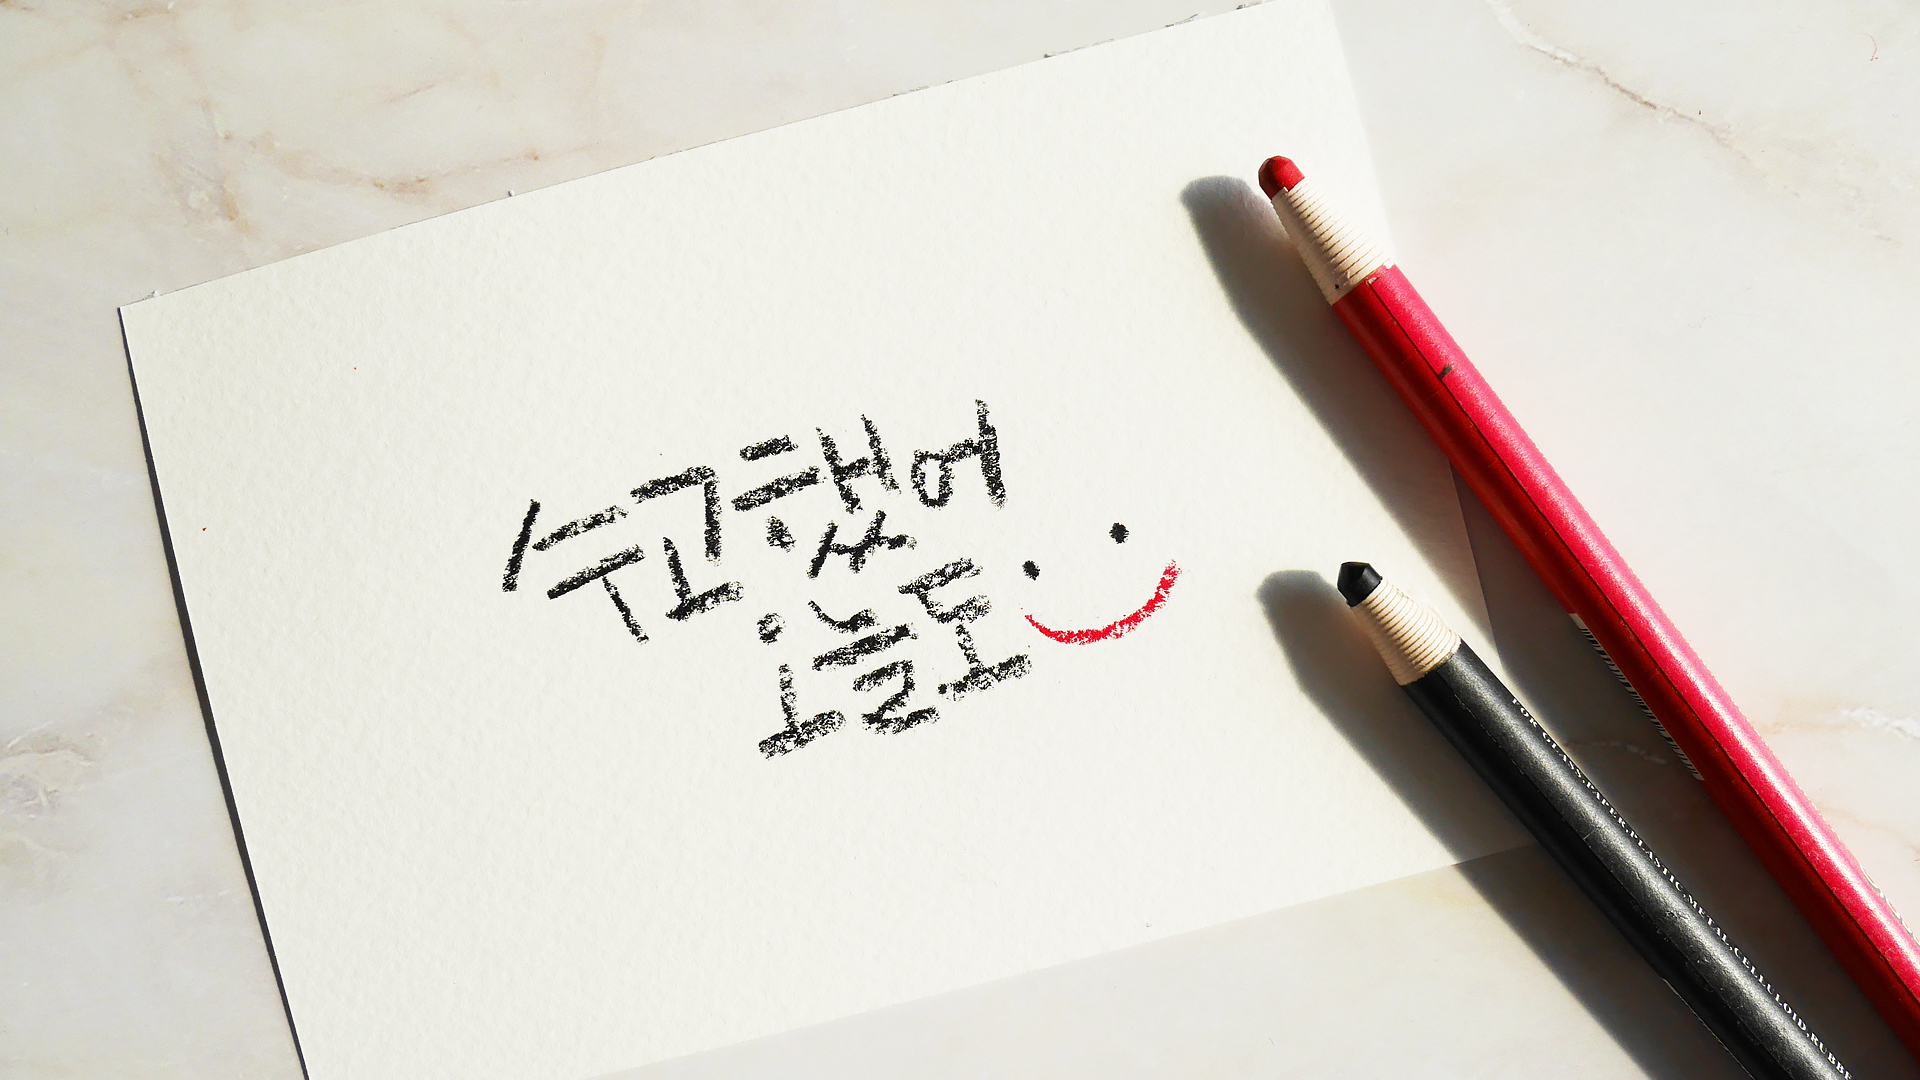 수고했어
오늘도
FOR GLASS.PAPER.PLASTIC.METAL.CELLULOID.RUBBE